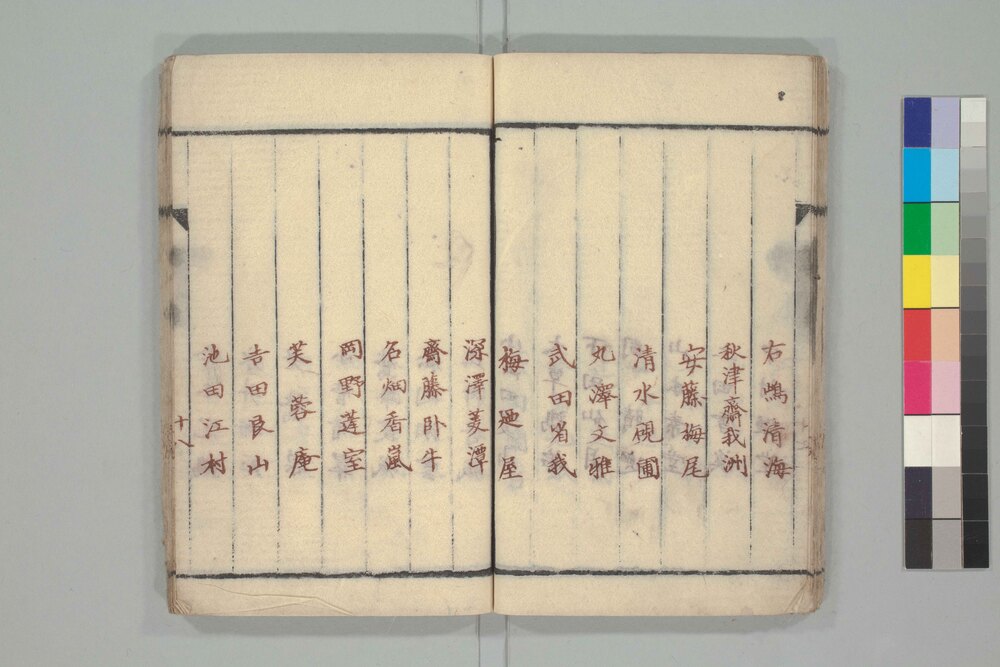 右鴫清海
秋津齋我洲
安藤梅尾
清水硯圃
丸澤文雅
武田省我
梅廼屋
深澤菱潭
齋藤卧牛
名畑香嵐
岡野蓬室
芙蓉庵
吉田良山
池田江村
十八